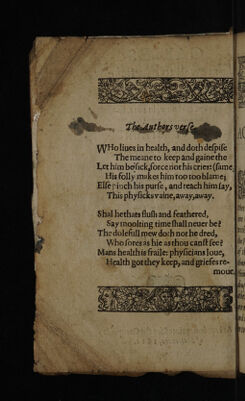 The Authors verse.
WHo liues in health, and doth despise
The meane to keep and gaine the (same,
Let him be sick, force not his cries:
His folly makes him too too blame;
Else pinch his purse, and teach him say,
This physicks vaine, away, away.
Shal he thats flush and feathered,
Say moolting time shall neuer be?
The dolefull mew doth not he dred,
Who sores as hie as thou canst see?
Mans health is fraile: physicians loue,
Health got they keep, and griefes re-
moue.